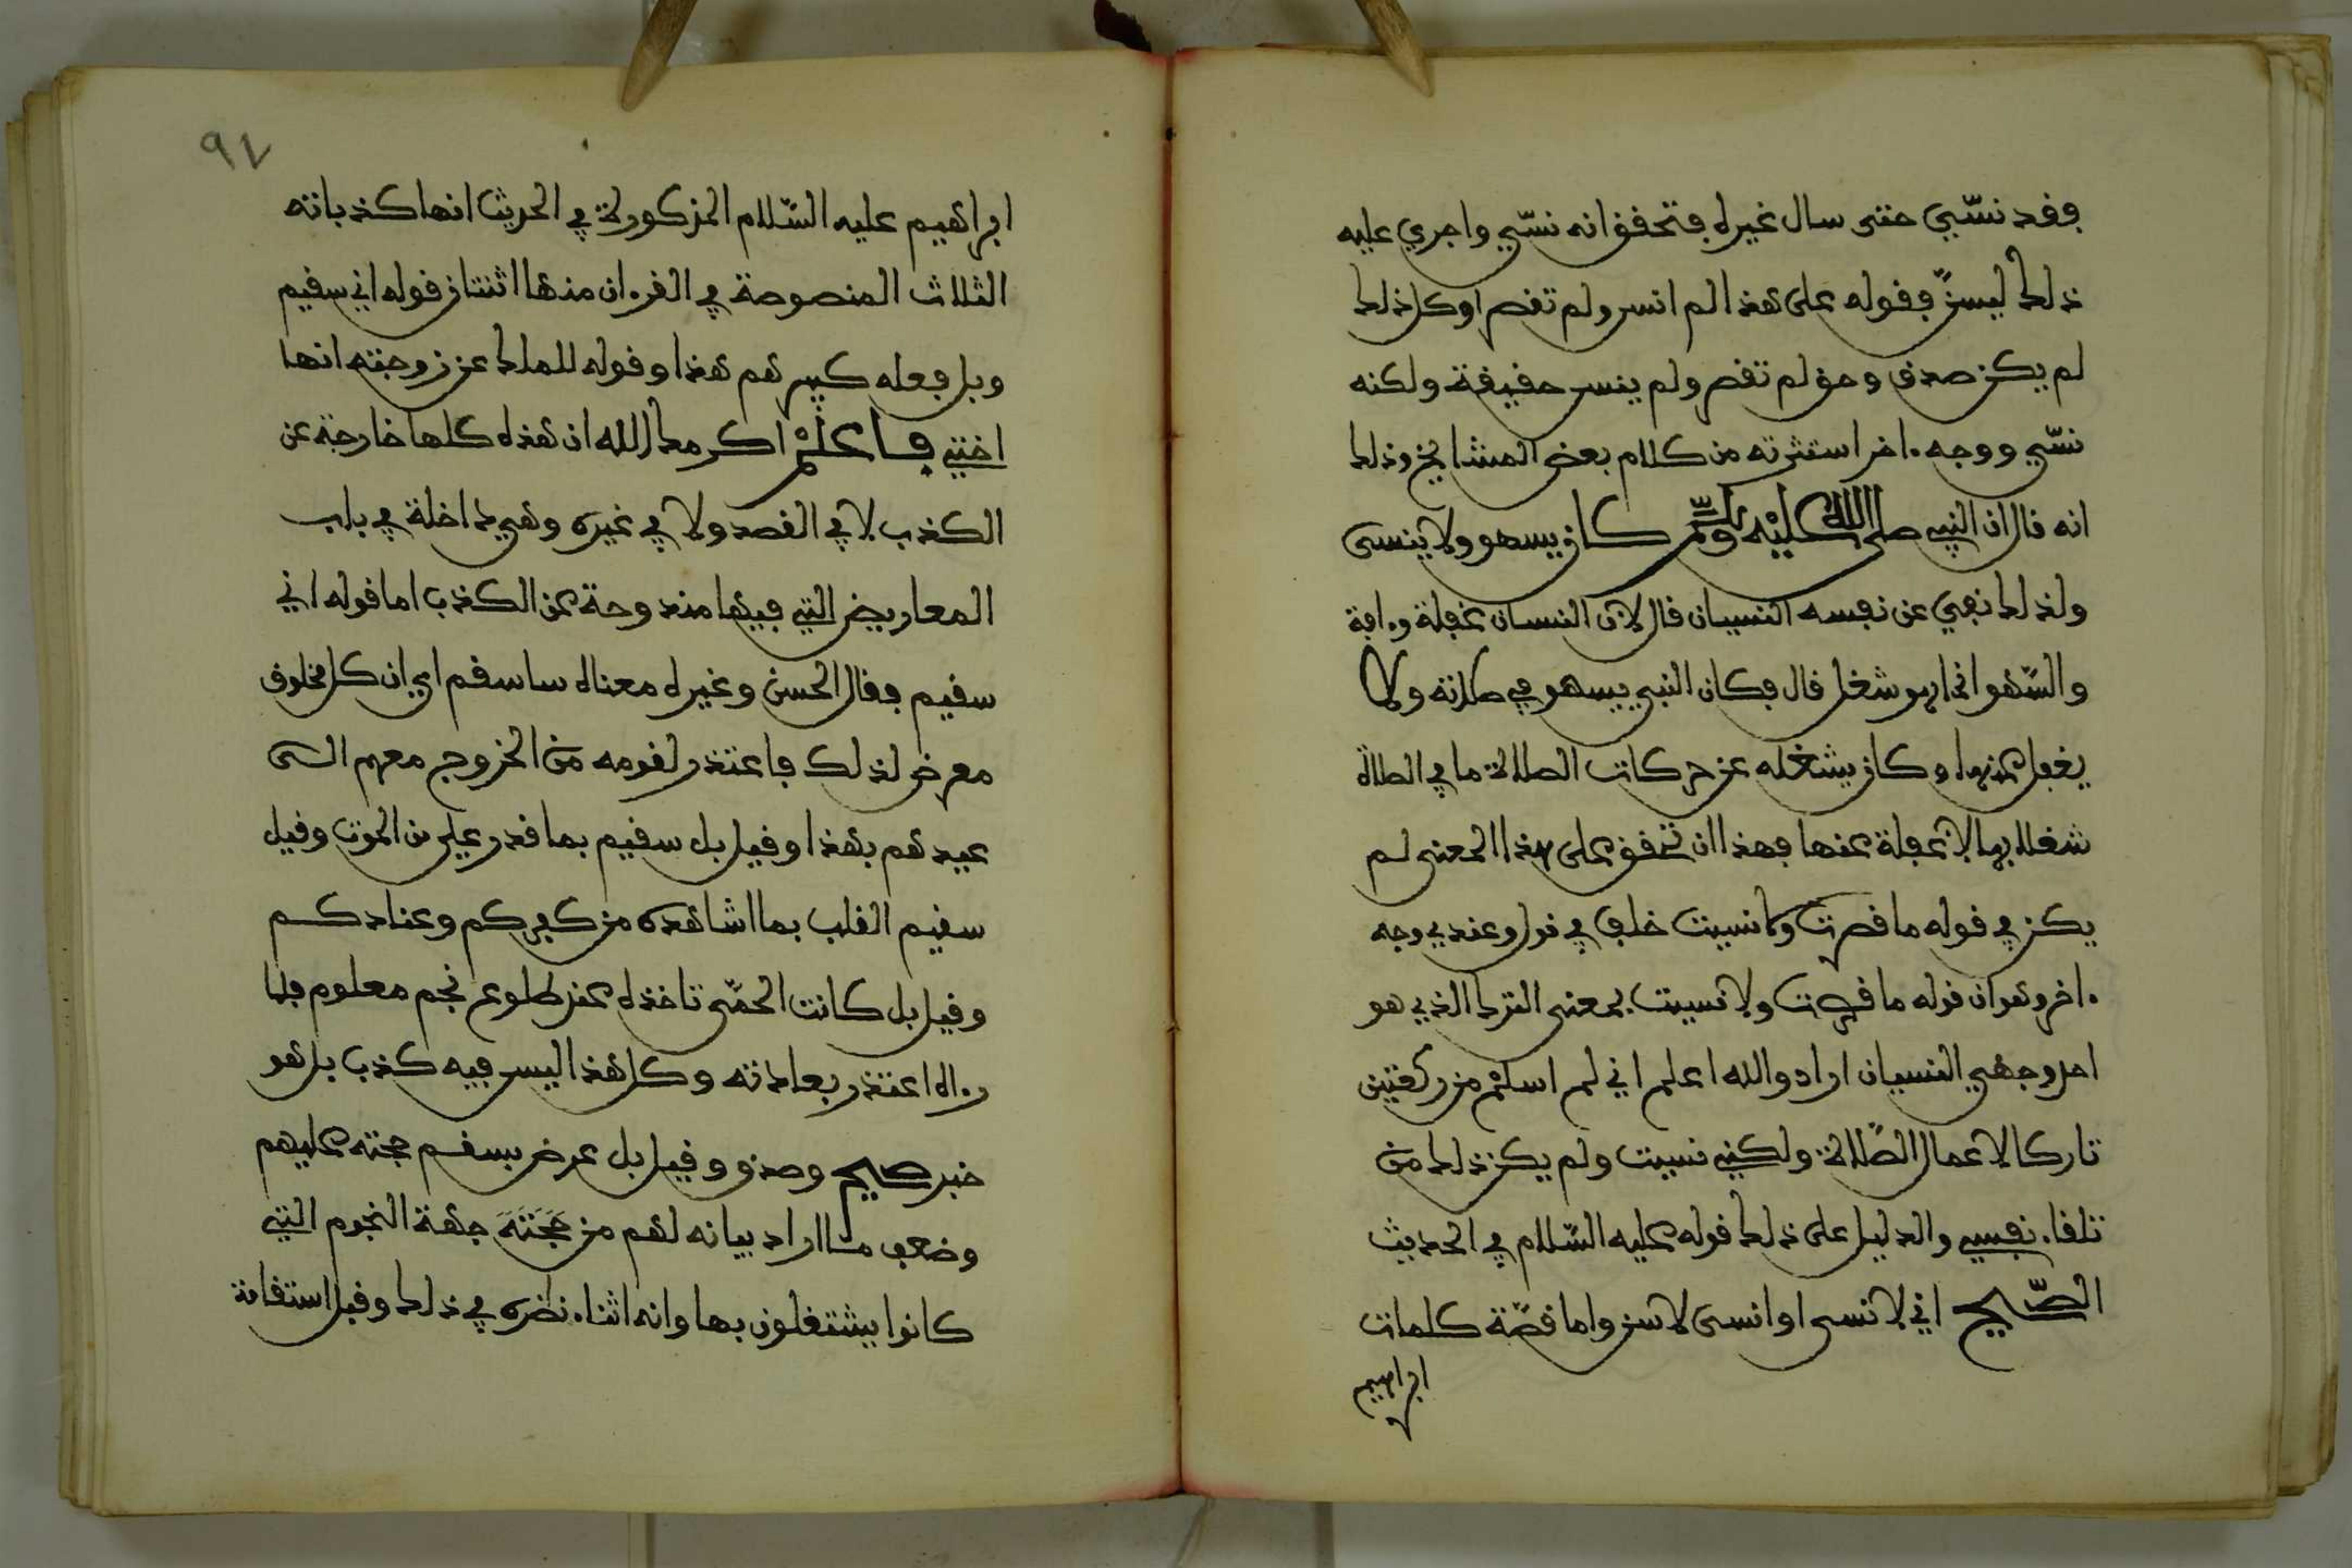 فقد نسي حتى سال غيره فتحقق انه نسي واجري عليه
ذلك ليسن فقوله على هذا لم انس ولم تقصر او كل ذلك
لم يكن صدق وحق لم تقصر ولم ينس حقيقة ولكنه
نسي ووجه ءاخر استثرته من كلام بعض المشايخ وذلك
انه قال ان النبي صلى الله عليه وسلم كان يسهو ولا ينسى
ولذلك نفى عن نفسه النسيان قال لان النسيان غفلة وءافة
والسهو انما هو شغل قال فكان النبي يسهو في صلاته ولا
يغفل عنها وكان يشغله عن حركات الصلاة ما في الصلاة
شغلا بها لا غفلة عنها فهذا ان تحقق على هذا المعنى لم
يكن في قوله ما قصرت وما نسيت خلف في قول وعندي وجه
ءاخر وهو ان قوله ما قصرت ولا نسيت بمعنى الترك الذي هو
احد وجهي النسيان اراد والله اعلم اني لم اسلم من ركعتين
تاركا لاعمال الصلاة ولكني نسيت ولم يكن ذلك من
تلقاء نفسي والدليل على ذلك قوله عليه السلام في الحديث
الصحيح اني لانسى او انسى لاسن واما قصة كلمات
ابراهيم
٩٧
ابراهيم عليه السلام المذكورة في الحديث انها كذباته
الثلاث المنصوصة في القرءان منها اثنتان قوله اني سقيم
وبل فعله كبيرهم هذا وقوله للملك عن زوجته انها
اختي فاعلم اكرمك الله ان هذه كلها خارجة عن
الكذب لا في القصد ولا في غيره وهي داخلة في باب
المعاريض التي فيها مندوحة عن الكذب اما قوله اني
سقيم فقال الحسن وغيره معناه ساسقم اي ان كل مخلوق
معرض لذلك فاعتذر لقومه من الخروج معهم الى
عيدهم بهذا وقيل بل سقيم بما قدر علي من الموت وقيل
سقيم القلب بما اشاهده من كفركم وعنادكم
وقيل بل كانت الحمى تاخذه عند طلوع نجم معلوم فلما
رءاه اعتذر بعادته وكل هذا ليس فيه كذب بل هو
خبر صحيح وصدق وقيل بل عرض بسقم حجته عليهم
وضعف ما اراد بيانه لهم من حجته جهة النجوم التي
كانوا يشتغلون بها وانه اثناء نظره في ذلك وقبل استقامة